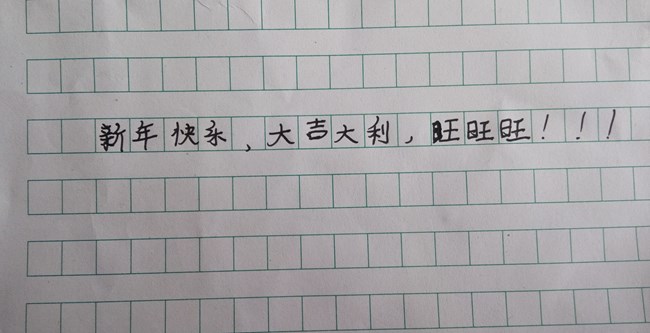 新年快乐，大吉大利，旺旺旺！！！